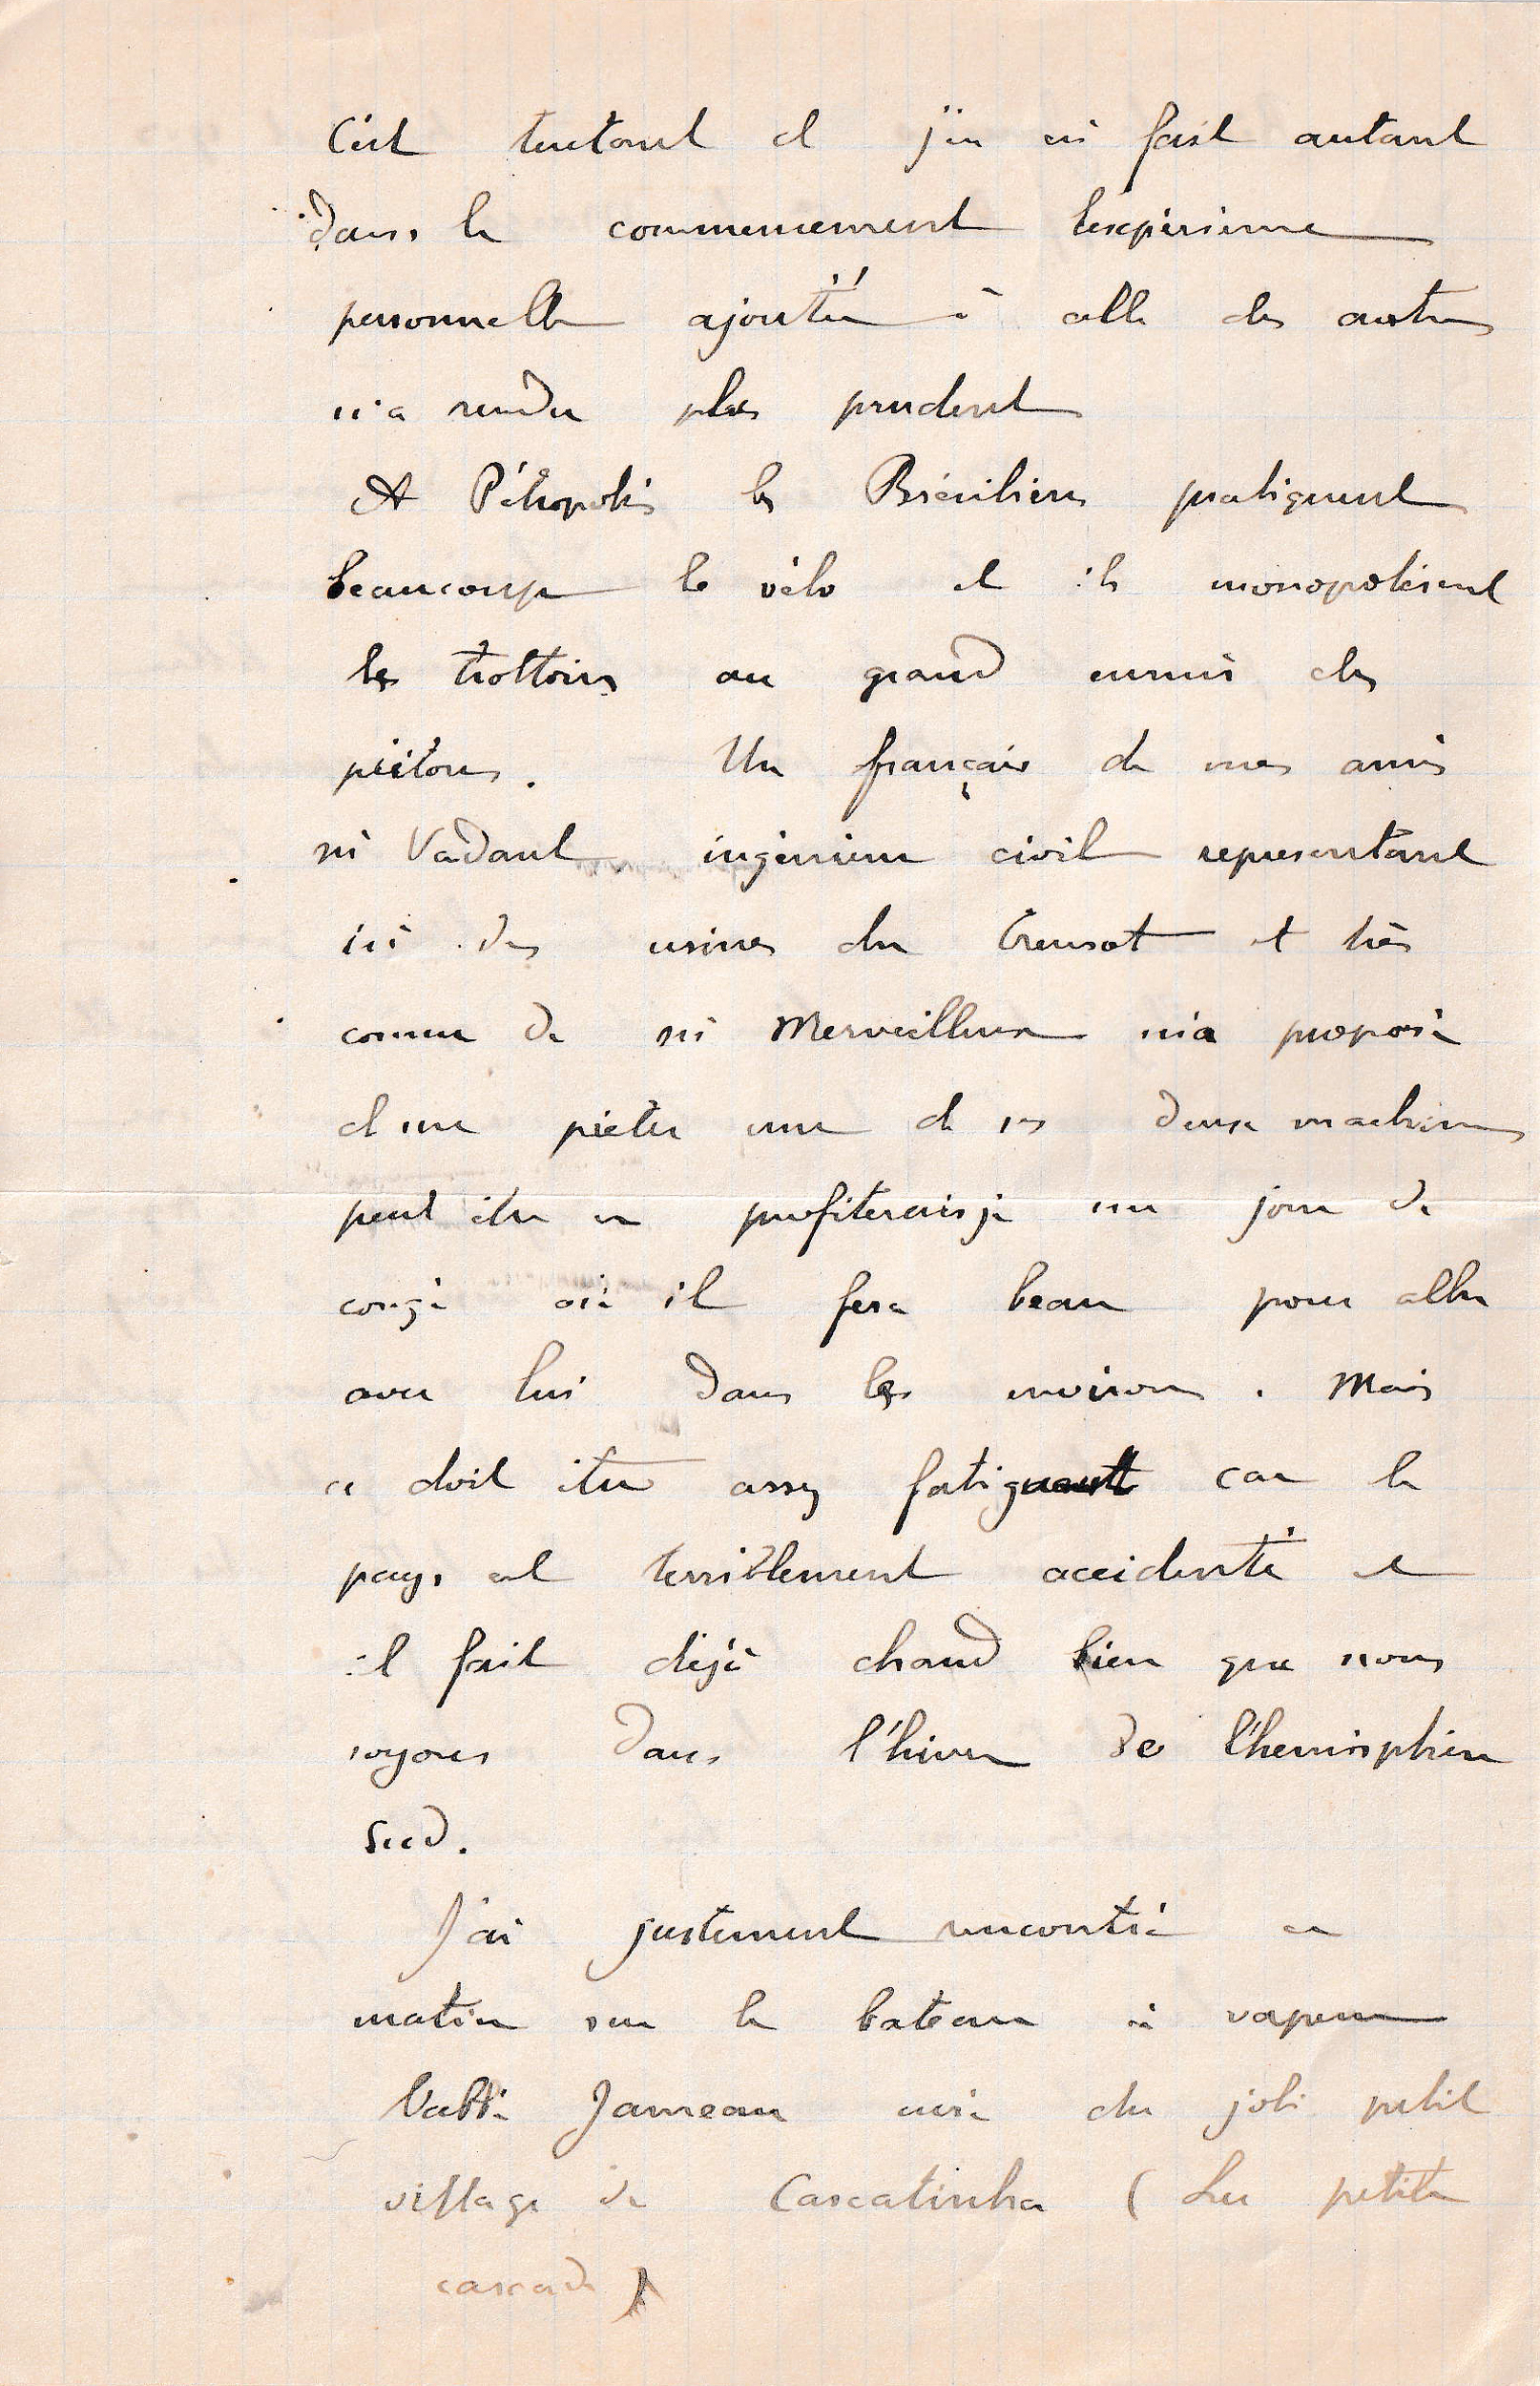 C'est tentant et j'en ai fait autant
dans le commencement l'expérience
personnelle ajoutée à celle des autres
m'a rendu plus prudent
A Pétropolis les Brésiliens pratiquent
beaucoup le vélo et ils monopolisent
les trottoirs au grand ennui des
piétons. Un français de mes amis
Mr Vadant ingénieur civil representant
ici des usines du Creusot et très
connu de Mr Merveilleux m'a proposé
de me prêter une de ses deux machines
peut être en profiterais je un jour de
congé où il fera beau pour aller
avec lui dans les environs. Mais
ce doit être assez fatiguant car le
pays est terriblement accidenté et
il fait déjà chaud bien que nous
soyons dans l'hiver de l'hemisphère
Sud.
J'ai justement rencontré ce
matin sur le bateau à vapeur
l'abbé Jameau curé du joli petit
village de Cascatinha (La petite
cascade)